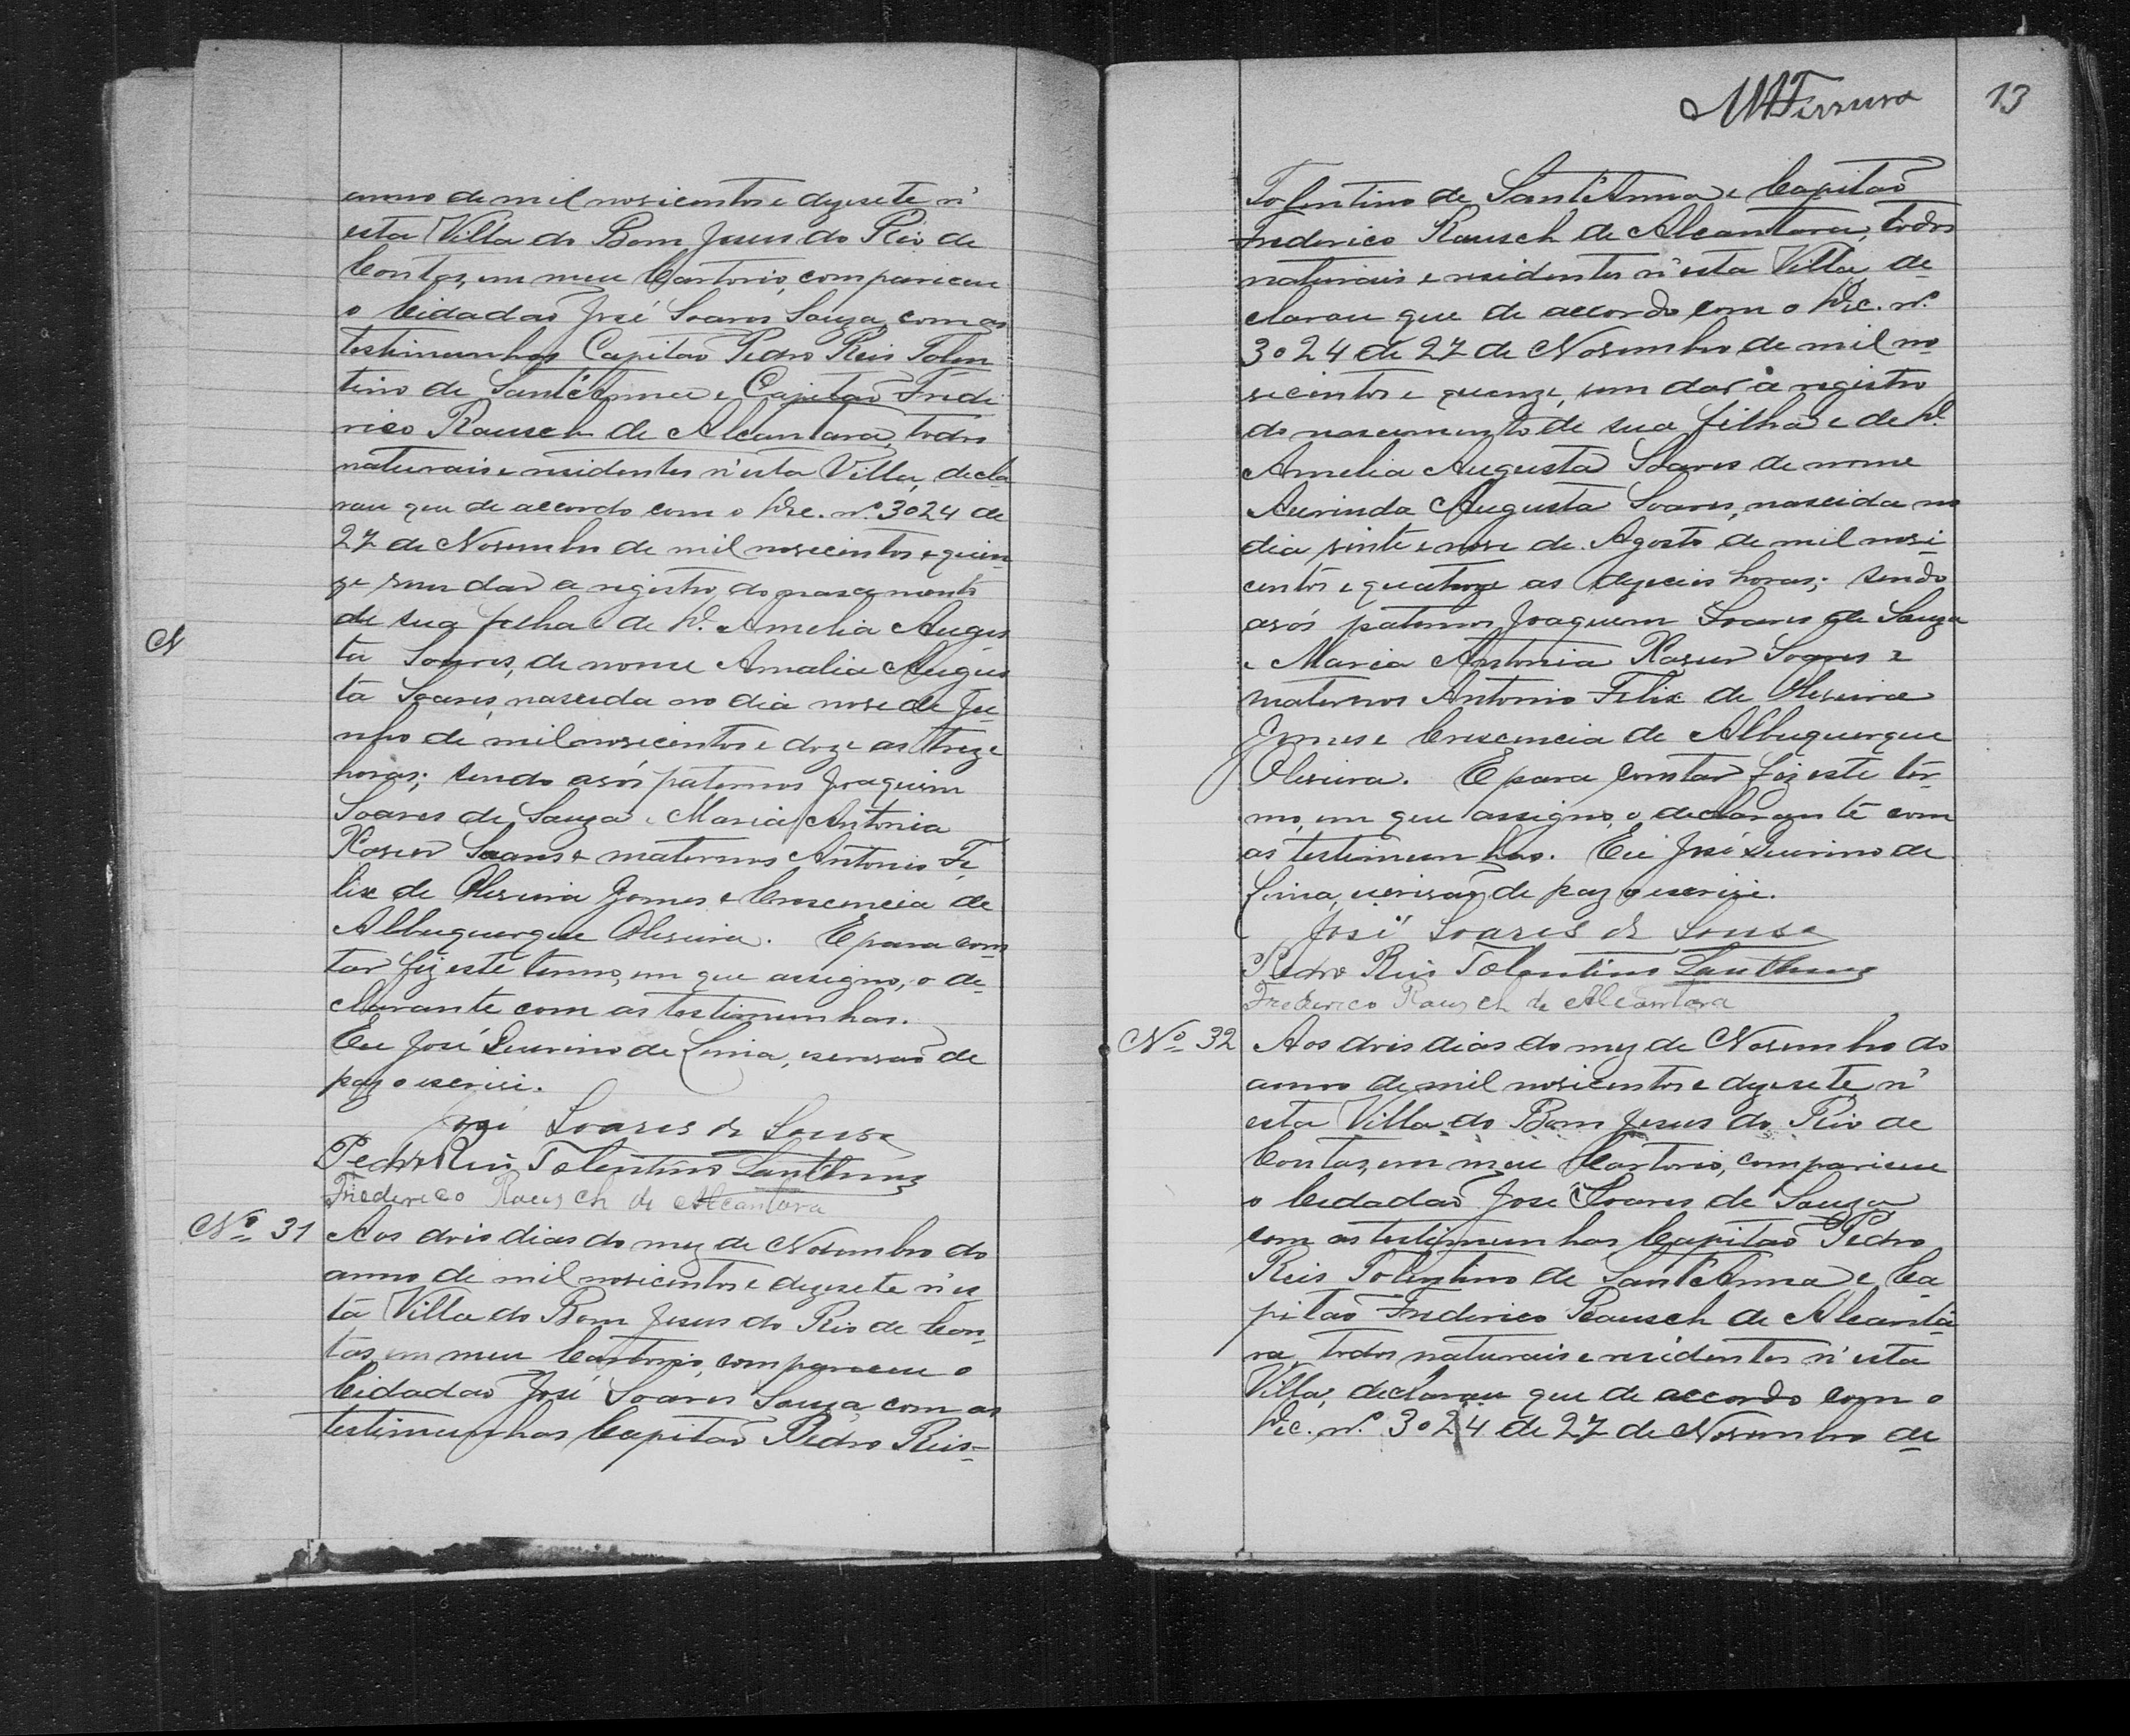 anno de mil novicentos e dezesete n'
esta Villa do Bom Jesus do Rio de
Contas, em meu Cartorio, compariceu
o Cidadão José Soares Souza, com as
testimunhas Capitão Pedro Reis Tolen
tino de Sant'Anna e Capitão Frede
rico Rausch de Alcantara, todos
naturais e residentes n'esta Villa, decla
rou que de accordo com o Dec. nº 3024 de
27 de Novembro de mil novicentos e quin
ze vem dar a registro do nascimento
de sua filha e de D. Amelia Augus
ta Soares, de nome Amalia Augus
ta Soares, nascida no dia nove de Ju-
nho de mil novicentos e doze as treze
horas; sendo avós paternos Joaquim
Soares de Souza e Maria Antonia
Xavier Soares e maternos Antonio Fe
lix de Oliveira Gomes e Crescencia de
Albuquerque Oliveira. E para cons
tar fiz este termo, em que assigno, o de-
clarante com as testimunhas.
Eu José Quirino de Lima, escrivão de
paz o escrivi.
José Soares de Sousa
Pedro Reis Tolentino Santhana
Frederico Rausch de Alcantara
N
Nº 31 Aos dois dias do mez de Novembro do
anno de mil novicentos e dezesete n'es
ta Villa do Bom Jesus do Rio de Con-
tas, em meu Cartorio, compareceu o
Cidadão José Soares Souza, com as
testimunhas Capitão Pedro Reis-
13
Tolentino de Sant'Anna e Capitão
Frederico Rausch de Alcantara, todos
naturais e residentes n'esta Villa, de-
clarou que de accordo com o Dec. nº
3024 de 27 de Novembro de mil no
vecentos e quinze, vem dar à registro
do nascimento de sua filha e de D.
Amelia Augusta Soares de nome
Aurinda Augusta Soares, nascida no
dia vinte e nove de Agosto de mil novi-
centos e quatroze as dezeceis horas; sendo
avós paternos Joaquim Soares de Souza
e Maria Antonia Xavier Soares e
maternos Antonio Felix de Oliveira
Gomes e Crescencia de Albuquerque
Oliveira. E para constar fiz este ter-
mo, em que assigno, o declarante com
as testimunhas. Eu José Quirino de
Lima, escrivão de paz o escrivi.
José Soares de Sousa
Pedro Reis Tolentino Santhana
Frederico Rausch de Alcantara
Nº 32 Aos dois dias do mez de Novembro do
anno de mil novicentos e dezesete, n'
esta Villa do Bom Jesus do Rio de
Contas, em meu Cartorio, compariceu
o Cidadão José Soares de Souza
com as testimunhas Capitão Pedro
Reis Tolentino de Sant'Anna e Ca
pitão Frederico Rausch de Alcanta
ra, todos naturais e residentes n'esta
Villa, declarou que de accordo com o
Dec. nº 3024 de 27 de Novembro de